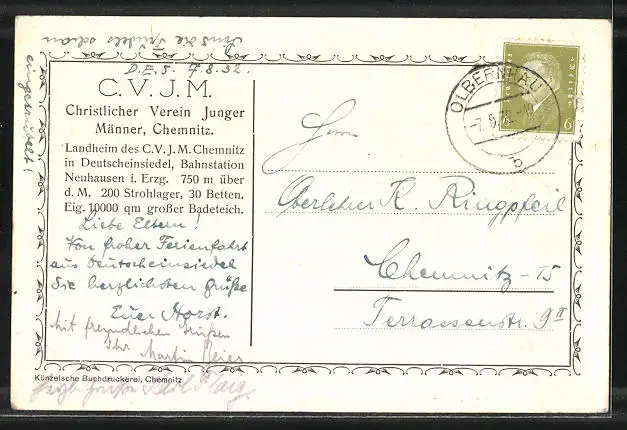 Sind die Friedels schon
eingerichtet!
D.E.S. 7.8.32.
C.V.J.M.
Christlicher Verein Junger
Männer, Chemnitz.
Landheim des C.V.J.M. Chemnitz
in Deutscheinsiedel, Bahnstation
Neuhausen i. Erzg. 750 m über
d. M. 200 Strohlager, 30 Betten.
Eig. 10000 qm großer Badeteich.
Liebe Eltern!
Von froher Ferienfahrt
aus Deutscheinsiedel
die herzlichsten Grüße
Euer Horst.
Mit freundlichen Grüßen
Ihr Martin
Herzl. Grüße
Künzelsche Buchdruckerei, Chemnitz
OLBERNHAU
-7.8.32
b
6
Herrn
Oberlehrer K. Ringpfeil
Chemnitz-15
Terrassenstr. 9 II